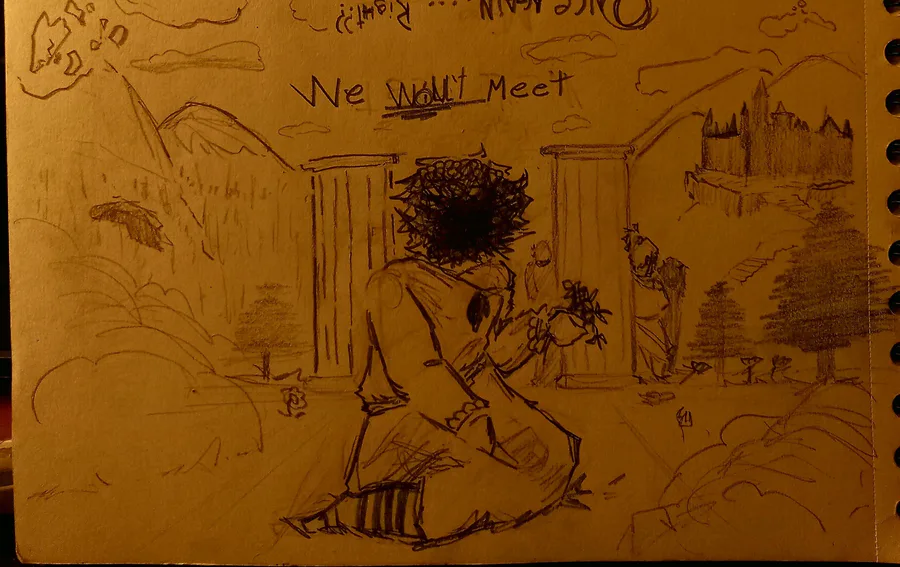 We Won't Meet
ONCE AGAIN ... Right??